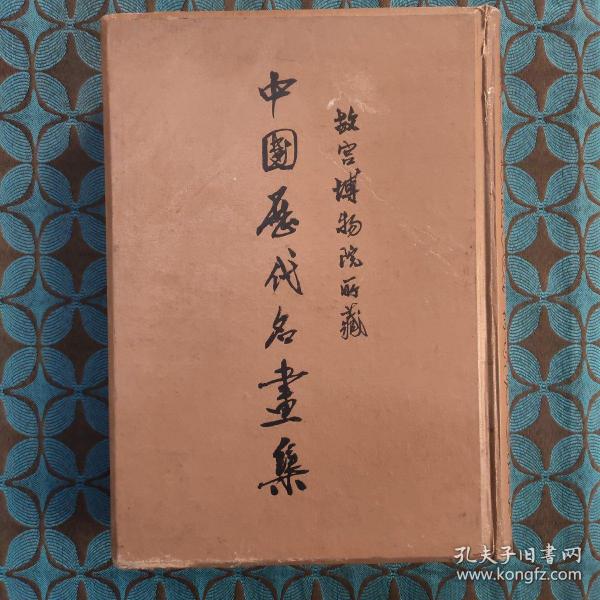 故宫博物院所藏
中國歷代名畫集
孔夫子旧書网
www.kongfz.com